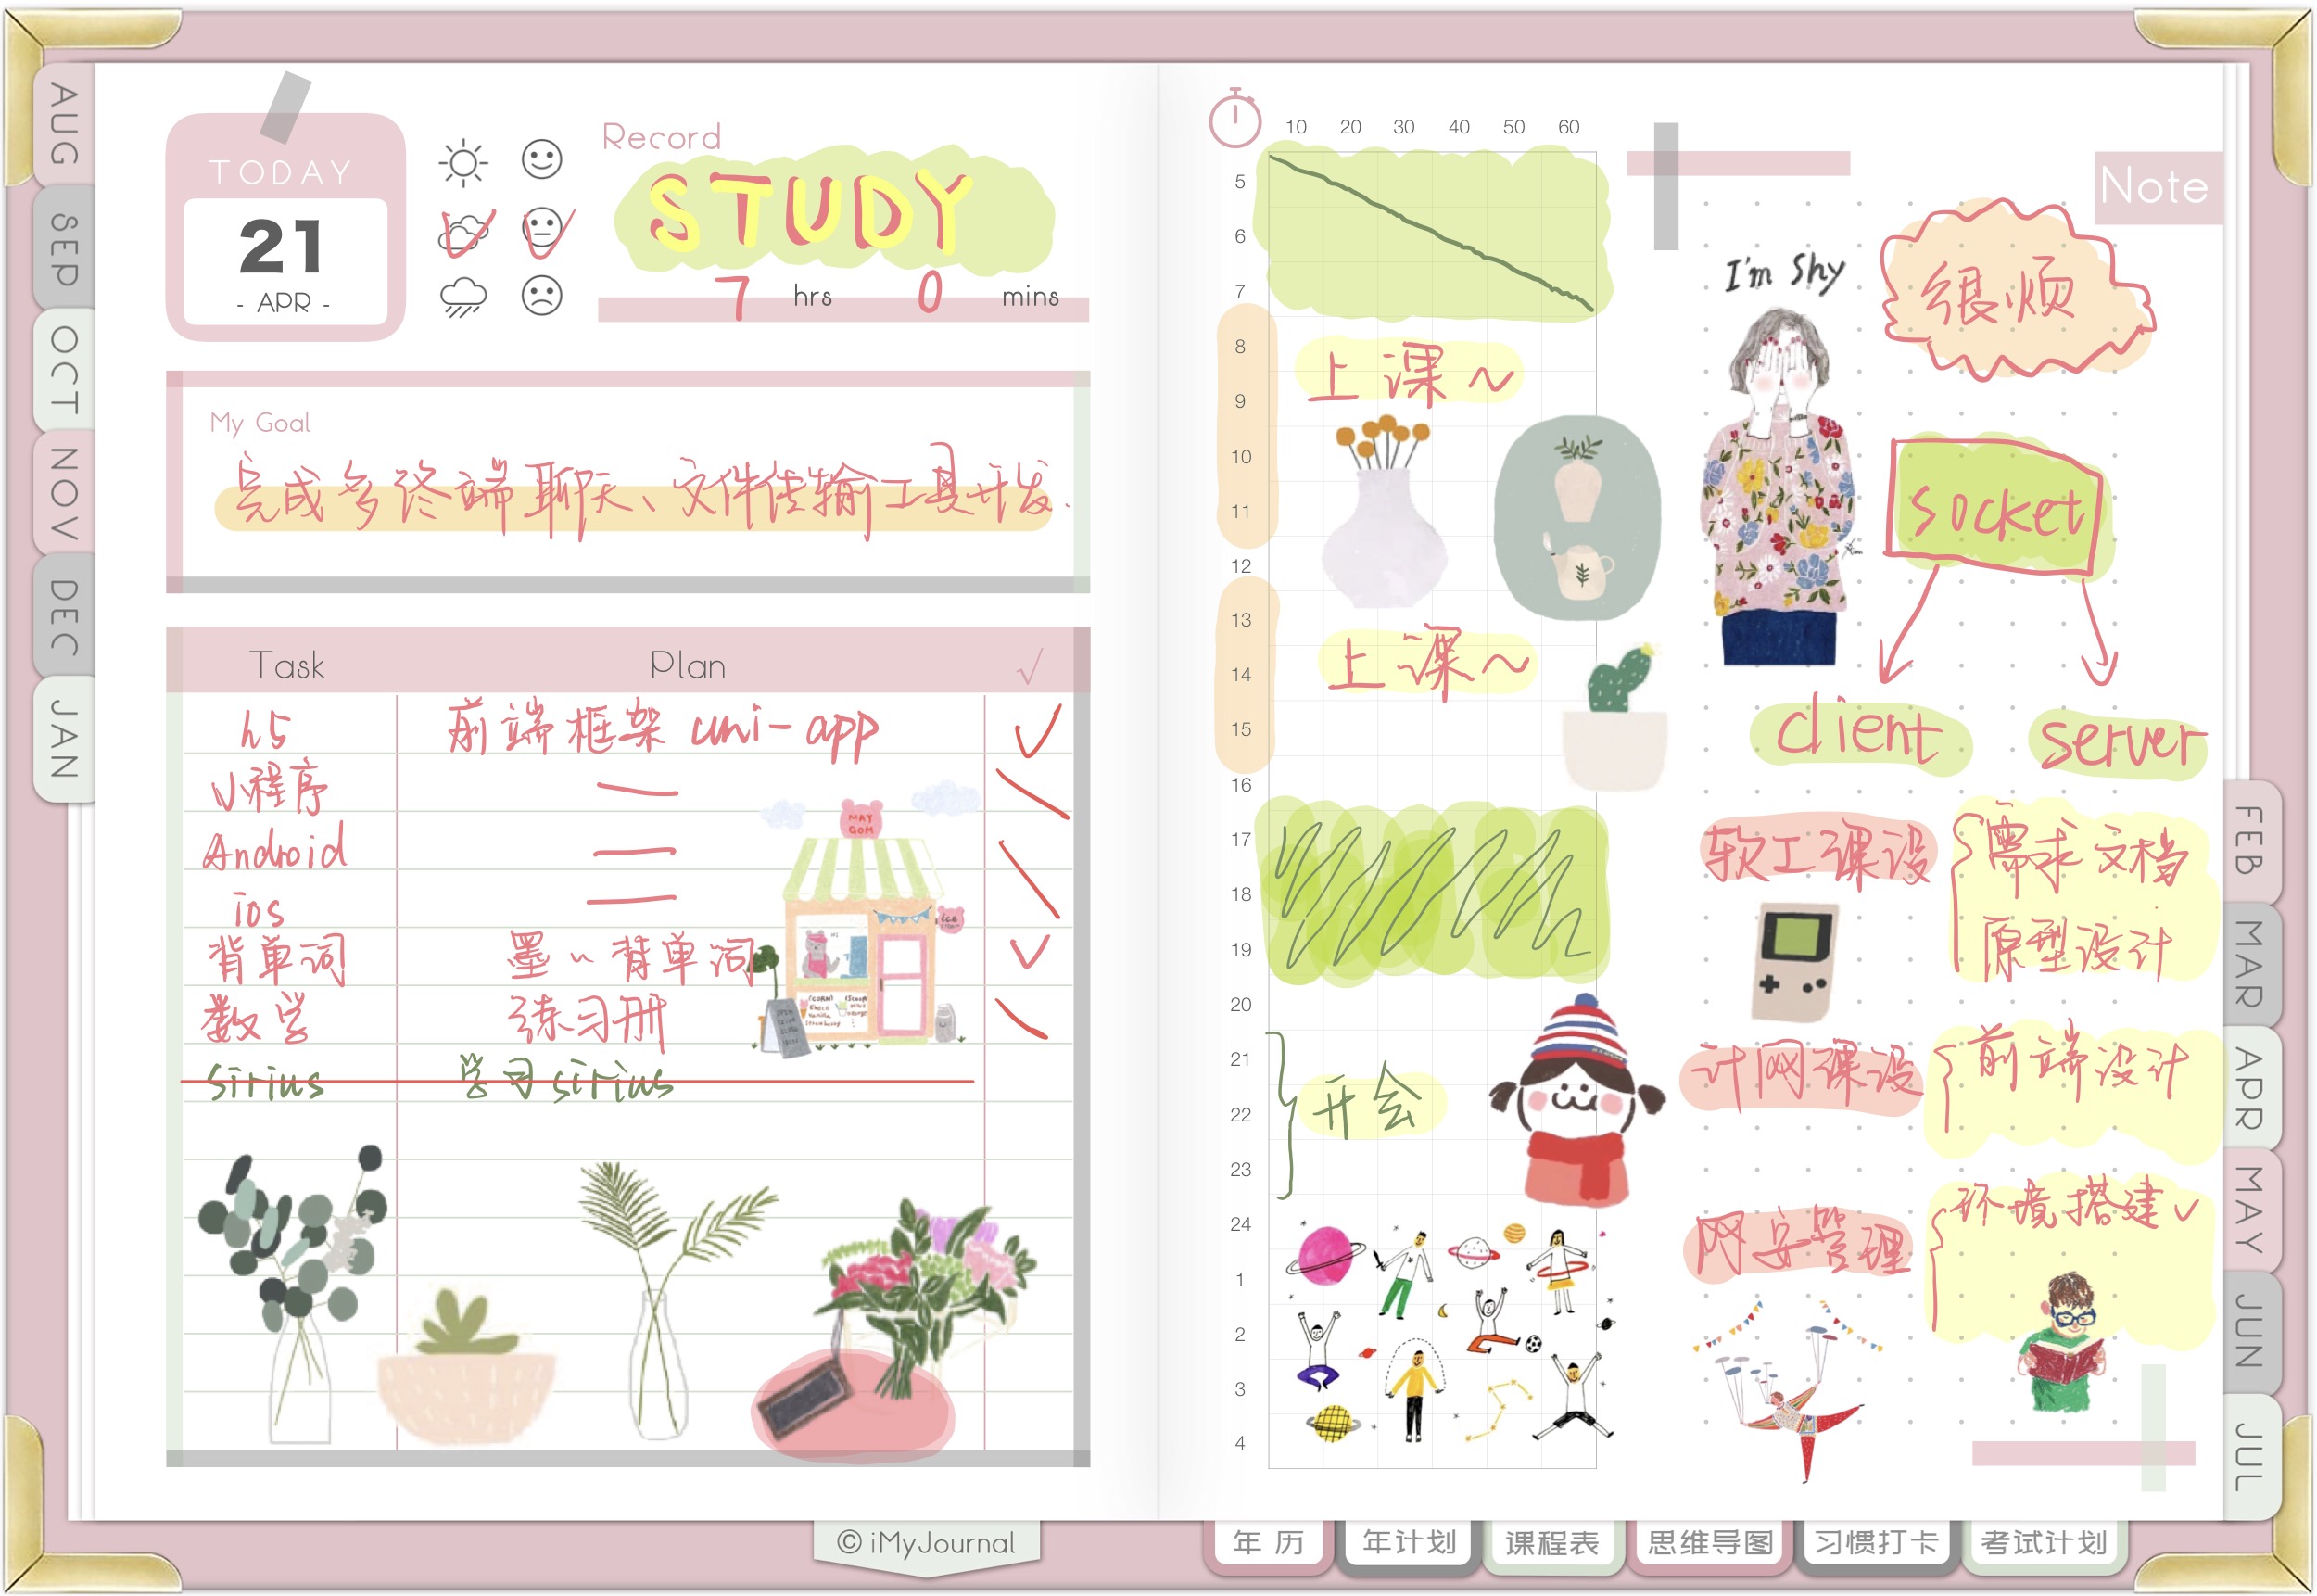 AUG
SEP
OCT
NOV
DEC
JAN
TODAY
21
- APR -
Record
STUDY
7 hrs 0 mins
My Goal
完成多终端聊天、文件传输工具开发.
Task Plan √
h5 前端框架 uni-app ✓
小程序 —
Android —
ios —
背单词 墨~背单词 ✓
数学 练习册
sirius 学习sirius
MAY
GOM
© iMyJournal
10 20 30 40 50 60
5
6
7
8
上课~
9
10
11
12
13
上课~
14
15
16
17
18
19
20
21
22
开会
23
24
1
2
3
4
Note
I'm Shy
很烦
socket
client server
软工课设 需求文档
原型设计
计网课设 前端设计
网安管理 环境搭建✓
FEB
MAR
APR
MAY
JUN
JUL
年 历
年计划
课程表
思维导图
习惯打卡
考试计划